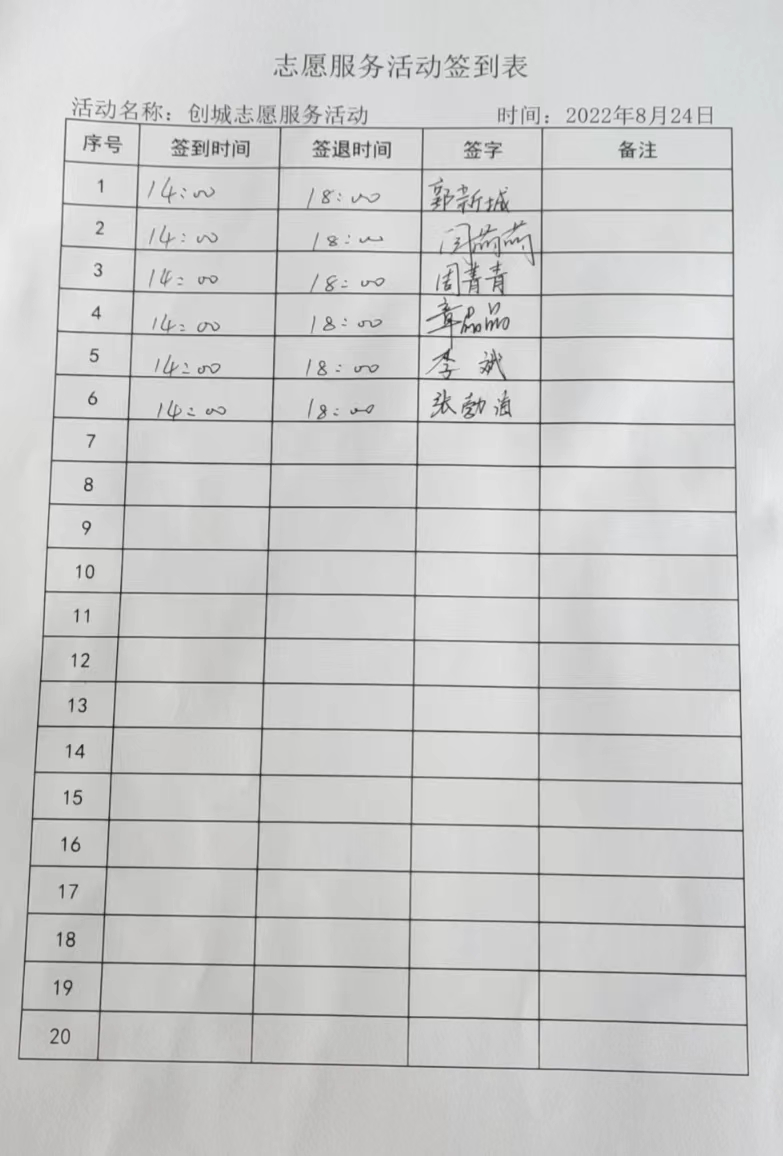 志愿服务活动签到表
活动名称：创城志愿服务活动 时间：2022年8月24日
序号 签到时间 签退时间 签字 备注
1 14:00 18:00 郭新城
2 14:00 18:00 闫萌萌
3 14:00 18:00 周菁青
4 14:00 18:00 章晶品
5 14:00 18:00 李斌
6 14:00 18:00 张勃
7
8
9
10
11
12
13
14
15
16
17
18
19
20